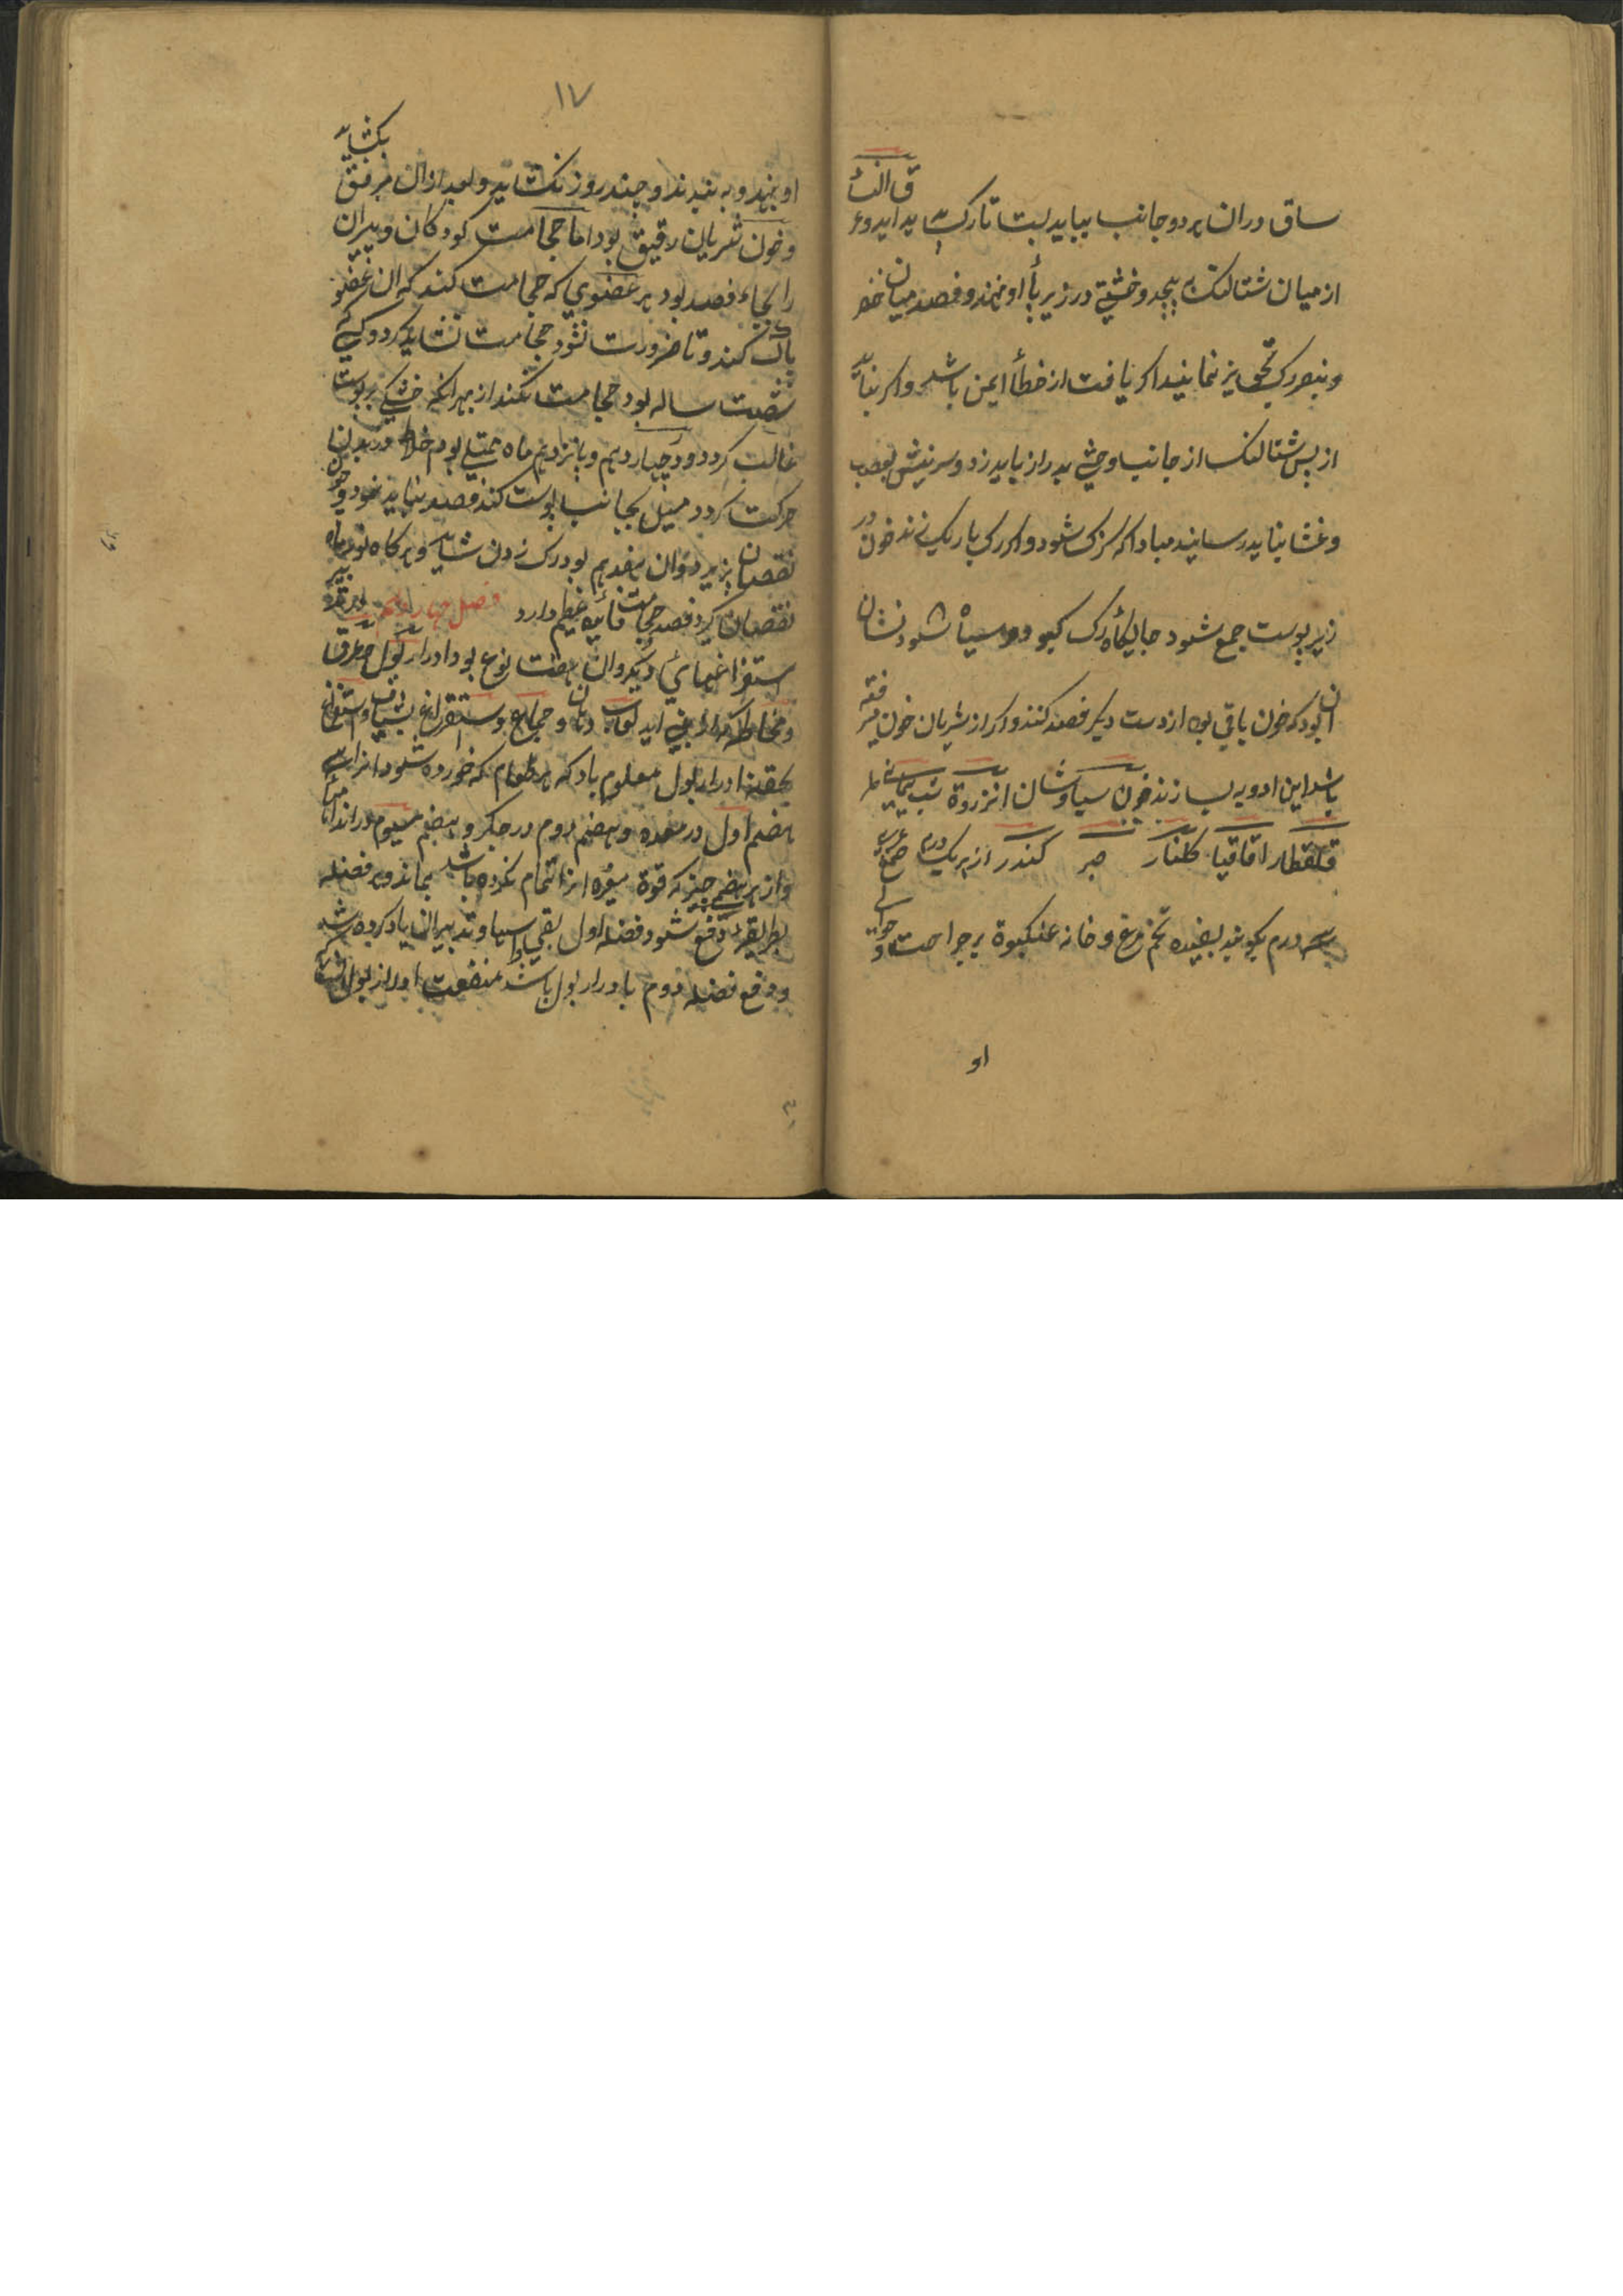 ساق و ران هر دو جانب بباید بست تا رک پدید اید و عرق النسأ
از میان شتالنک به بیجد و خشتی در زیر پأ او نهند و فصد میان خنصر
و بنصر رک نیز نمایند اکر یافت از خطأ ایمن باشد و اکر نیابد
از بس شتالنک از جانب وحشی بدراز باید زد و سر نیش بعصب
و غشا نباید رسانید مبادا که کزک شود و اکر رک باریک زند خون در
زیر پوست جمع شود جایکأه رک کبود و سیاه شود نشان
ان بود که خون باقی بود از دست دیکر فصد کنند و اکر از شریان خون
باشد این ادویه بسازند خون سیاوشان انزروة شب یمانی
قلقطار اقاقیا کلنار صبر کندر از هر یک درم صمغ عربی
سه درم بکوبند بسفیده تخم مرغ و خانه عنکبوة بر جراحت
او
١٧
او نهند و به بندند و چند روز نکشاید و بعد ازان برفق بکشاید
و خون شریان رقیق بود اما حجامت کودکان و پیران
را بجاء فصد بود هر عضوی که حجامت کنند که ان عضو
پاک کند و تا ضرورت نشود حجامت نشاید کرد و کسی که
شصت ساله بود حجامت نکند از بهر انکه خشکی بر پوست
غالب کردد و در چهاردهم و پانزدهم ماه ممتلی بود خلاط در بدن
حرکت کردد میل بجانب پوست کند فصد نباید نمود و چون
نقصان پزیرد و ان هفدهم بود رک زدن شاید و هرکاه نور ماه
نقصان کیرد فصد حجامت فائده عظیم دارد فصل چهاردهم در تدبیر
ستفراغهائ دیکر و ان هفت نوع بود ادرار بول عرق
و مخاط که از بینی اید لعاب دهان و جماع و ستفراغ بشیاف و استفراغ
بحقنه ادرار بول معلوم باد که هر طعام که خورده شود انرا سه
هضم اول در معده و هضم دوم در جکر و هضم سیوم در اندامها
و از هر هضم چیز که قوة مغیره انرا تمام نکرده باشد بماند و هر فضله
بطریقه دفع شود فضله اول بقی و اسهال و تدبیر ان یاد کرده شد
و دفع فضله دوم بادرار بول باشد منفعت ادرار بول